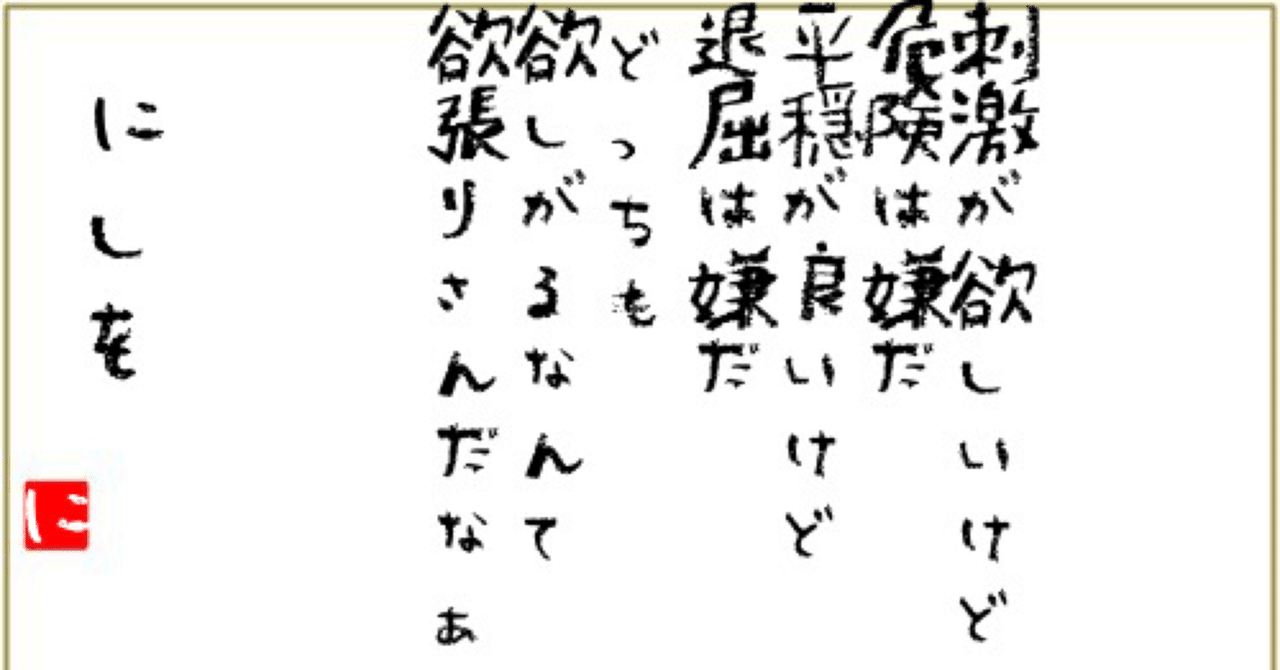 刺激が欲しいけど
危険は嫌だ
平穏が良いけど
退屈は嫌だ
どっちも
欲しがるなんて
欲張りさんだなぁ
にしを
に